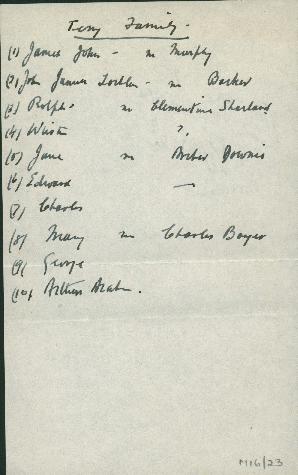 Family -
(1) James John - m Murphy
(2) John James - m Barker
(3) Ralph m Clementina
(4)
(5) Jane m Archer Downie
(6) Edward —
(7) Charles
(8) Mary m Charles Boyer
(9) George
(10) Arthur
M16/23